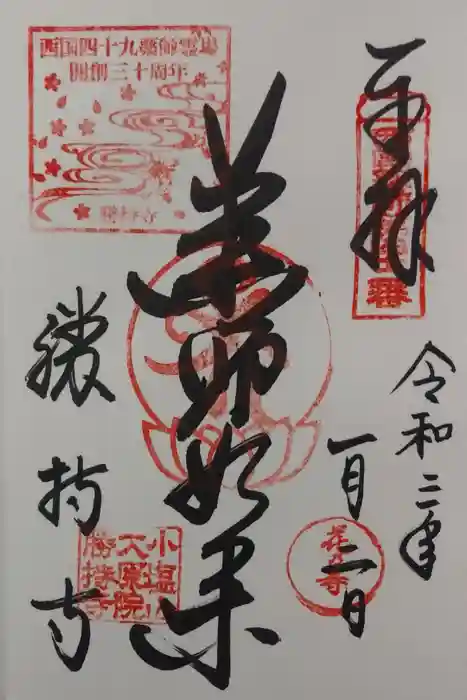 奉拝
令和二年
一月二日
薬師如来
勝持寺
西国四十九薬師霊場
開創三十周年
勝持寺
花の寺
小塩山
大原院
勝持寺